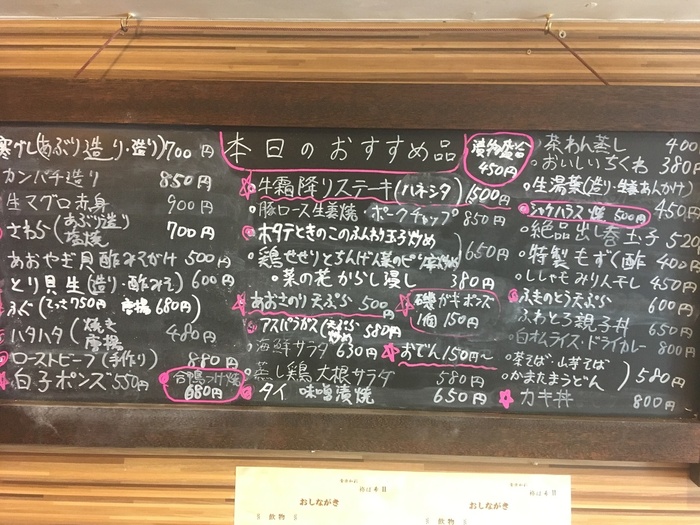 本日のおすすめ品
寒ブし(あぶり造り・造り)700円
カンパチ造り 850円
生マグロ赤身 900円
さわら(あぶり造り 塩焼 700円
あおやぎ貝酢みそかけ 500円
とり貝生(造り・酢みそ) 600円
ふぐ(てっさ750円 唐揚680円)
ハタハタ(焼き 唐揚 480円
ローストビーフ(手作り) 880円
白子ポンズ 550円
合鴨つけ焼 680円
漬物盛合 450円
牛霜降りステーキ(ハネシタ) 1500円
豚ロース生姜焼・ポークチャップ 850円
ホタテときのこのふんわり玉子炒め
鶏せせりとちんげん菜のピリ辛炒め 650円
菜の花からし浸し 380円
あおさのり天ぷら 500円
磯がきポンズ 1個150円
アスパラガス(天ぷら 炒め 580円
海鮮サラダ 630円
おでん150円~
蒸し鶏大根サラダ 580円
タイ味噌漬焼 650円
茶わん蒸し 400
おいしいちくわ 380円
生湯葉(造り・生姜あんかけ) 450円
シャケハラス焼 500円
絶品出し巻玉子 520
特製もずく酢 400円
ししゃもみりん干し 450円
ふきのとう天ぷら 600円
ふわとろ親子丼 650円
白オムライス・ドライカレー 800円
茶そば・山芋そば
かまたまうどん 580円
カキ丼 800円
おしながき
飲物
おしながき
飲物